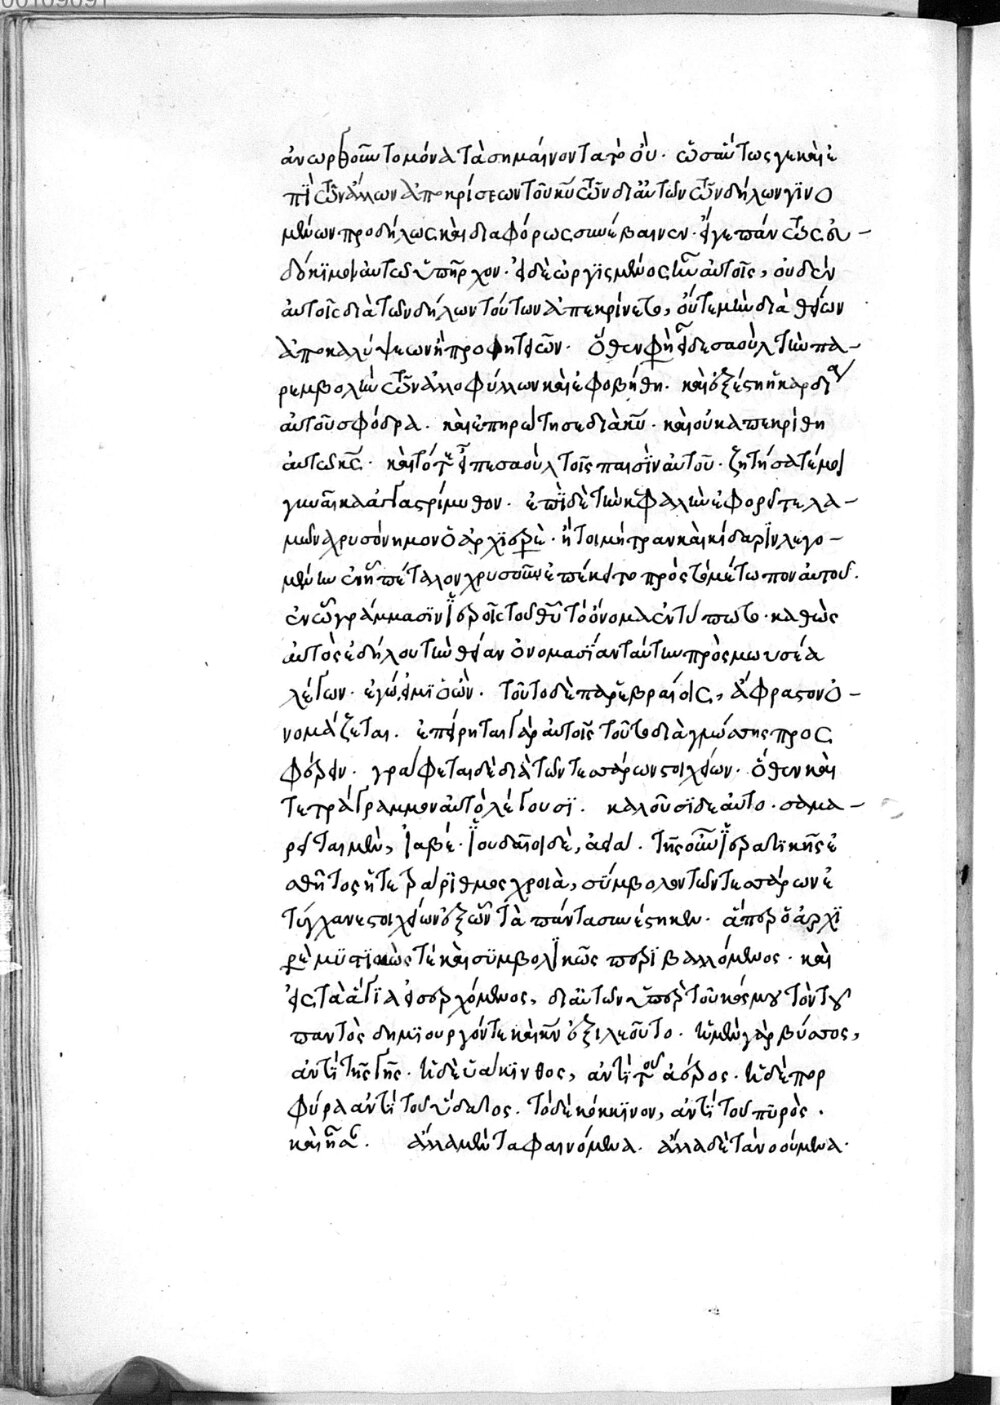 ἀνωρθοῦντο μόνα τὰ σημαίνοντα τὸ οὐ. ὡσαύτως γε καὶ ἐ
πῒ τῶν ἄλλων ἀποκρίσεων τοῦ κυ τῶν διὰ τῶν δήλων γῒνο
μένων προδήλως καὶ διαφόρως συνέβαινεν. εἴγε πάντως εὐ-
δόκϊμοι αὐτῶ ὑπῆρχον. εἰ δὲ ὠργϊσμένος ἦν αὐτοῖς, οὐδὲν
αὐτοῖς διὰ τῶν δήλων τούτων ἀπεκρίνετο, οὔτε μὴν διὰ θείων
ἀποκαλύψεων ἢ προφητειῶν. ὅθεν φη εἶδε σαοὺλ τὴν πα-
ρεμβολὴν τῶν ἀλλοφύλλων καὶ ἐφοβήθη. καὶ ἐξέστη ἡ καρδία
αὐτοῦ σφόδρα. καὶ ἐπηρώτησε διὰ κυ. καὶ οὐκ ἀπεκρίθη
αὐτῶ κς. καὶ τότε εἶπε σαοὺλ τοῖς παισὶν αὐτοῦ. ζητήσατέ μοι
γυναῖκα ἐγγαστρίμυθον. ἐπῒ δὲ τὴν κεφαλὴν ἐφόρει τελα-
μῶνα χρυσόνημον ὁ ἀρχϊερε. ἤτοι μήτραν καὶ κίδαρϊν λεγο-
μένην ἐν ἧ πέταλον χρυσοῦν ἐπέκειτο πρὸς τὸ μέτωπον αὐτοῦ.
ἐν ὧ γράμμασϊν ἱεροῖς τοῦ θυ τὸ ὄνομα ἐντετύπωτο. καθὼς
αὐτὸς ἐδήλου τὴν θείαν ὀνομασΐαν ταύτην πρὸς μωυσέα
λέγων. ἐγώ εἰμϊ ὁ ὤν. τοῦτο δὲ παρ ἑβραίοις, ἄφραστον ὀ-
νομάζεται. ἐπείρηται γὰρ αὐτοῖς τοῦτο διὰ γλώσσης προς
φέρειν. γράφεται δὲ διὰ τῶν τεσσάρων στοιχείων. ὅθεν καὶ
τετράγραμμον αὐτὸ λέγουσϊ. καλοῦσϊ δε αὐτο. σαμα-
ρεῖται μὲν, ἰαβέ. ἰουδαῖοι δὲ, ἀϊα. τῆς οὖν ἱερατϊκῆς ἐ
σθῆτος ἡ τετράρϊθμος χροιὰ, σύμβολον τῶν τεσσάρων ἐ
τύγχανε στοιχείων ἐξ ὧν τὰ πάντα συνέστηκεν. ἅπερ ὁ ἀρχϊ
ερε μϋστϊκῶς τε καὶ συμβολϊκῶς περϊβαλλόμενος. καὶ
εἰς τὰ ἅγϊα εἰσερχόμενος, διὰ τῶν ὑπὲρ τοῦ κόσμου τὸν τοῦ
παντὸς δημϊουργόν τε καὶ θν ἐξϊλεοῦτο. ἡ μὲν γὰρ βύσσος,
ἀντὶ τῆς γῆς. ἡ δὲ ὑάκϊνθος, ἀντὶ τοῦ ἀέρος. ἡ δὲ πορ
φύρα ἀντὶ τοῦ ὕδατος. τὸ δὲ κόκκϊνον, ἀντὶ τοῦ πυρὸς.
καὶ ἦσ. ἄλλα μὲν τὰ φαινόμενα. ἄλλα δὲ τὰ νοούμενα.